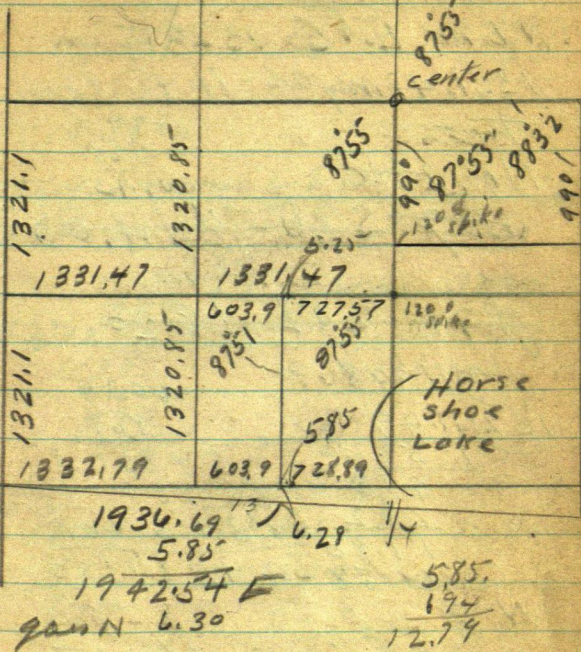 87°55'
center
1321.1
1320.85
87°55'
990'
87°55'
88 32
990'
120 d
spike
5.25
1331.47
1331.47
603.9
727.57
120 d
spike
1321.1
1320.85
87°51
87°55'
Horse
Shoe
Lake
585
1332.79
603.9
728.89
13
6.29
1/4
1936.69
5.85
1942.54 E
6.30
5.85
694
12.79